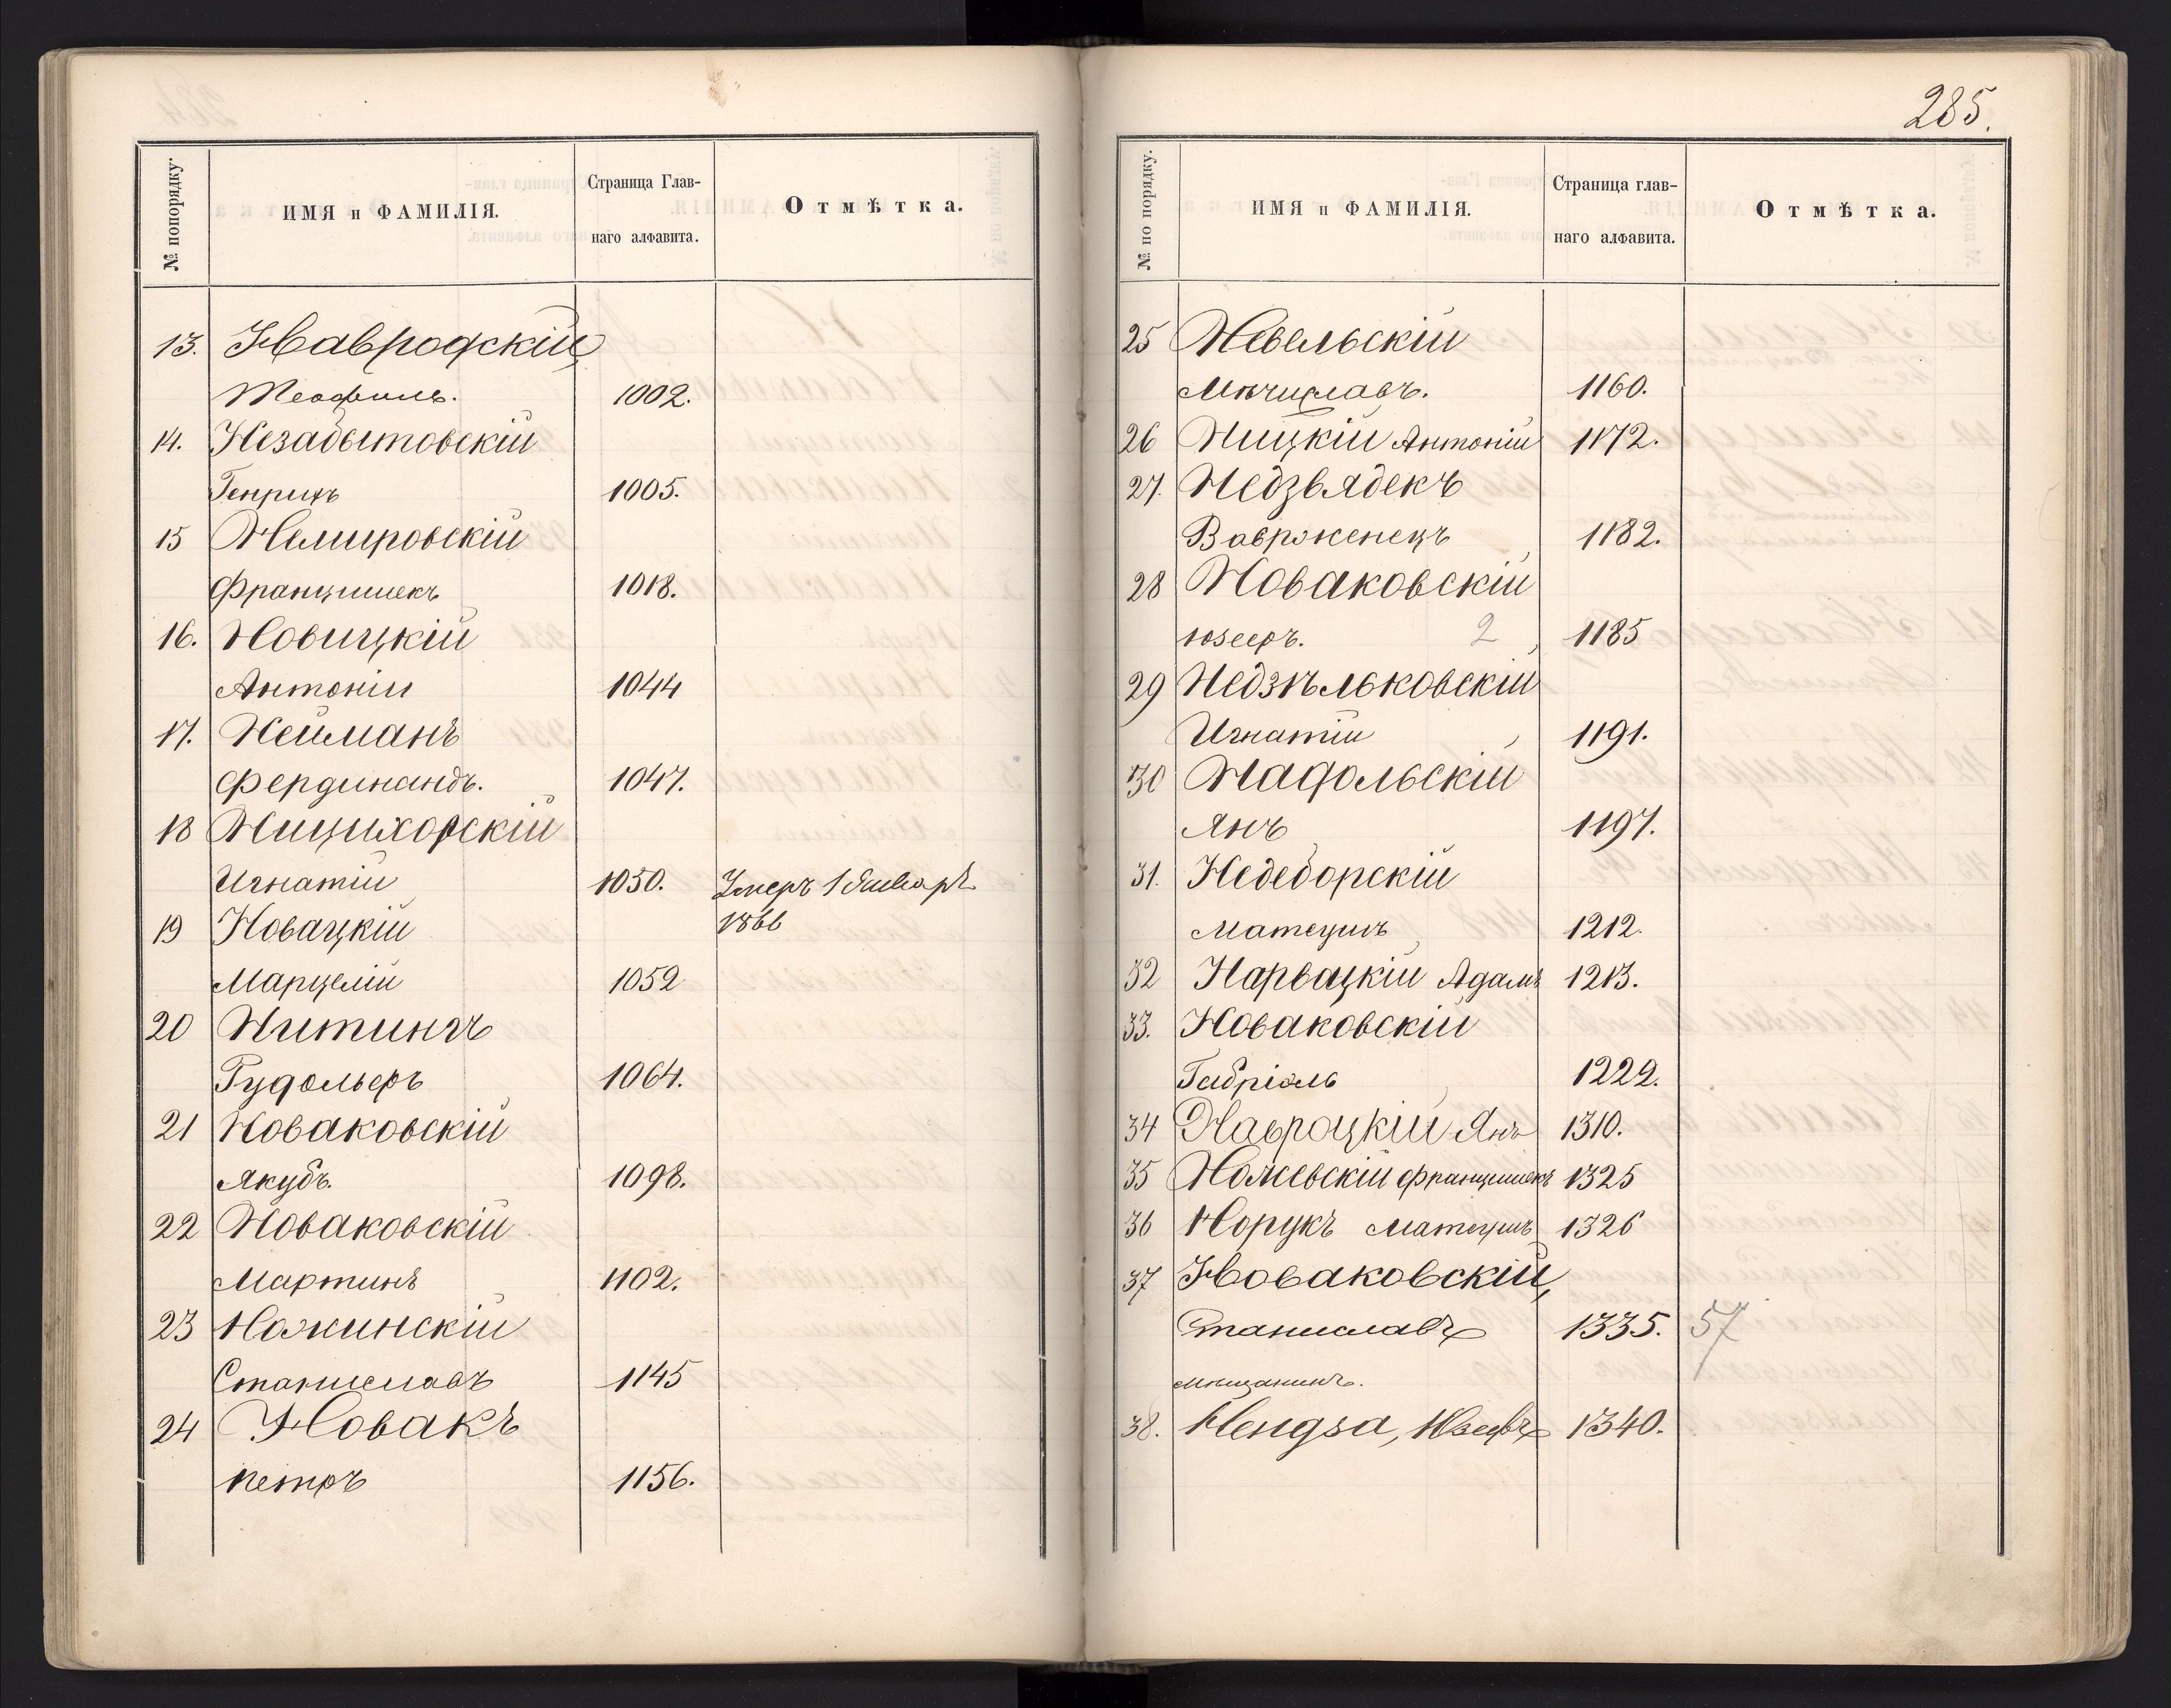 № по порядку.
ИМЯ и ФАМИЛІЯ.
Страница Глав-
наго алфавита.
Отмѣтка.
13. Навродскій,
Теофиль. 1002.
14. Незабытовскій
Генрихъ 1005.
15 Немировскій
Францишекъ 1018.
16. Новицкій
Антоній 1044
17. Нейманъ
Фердинандъ. 1047.
18 Ницихорскій
Игнатій 1050. Умеръ 1 Январѣ
19 Новацкій 1866
Марцелій 1052
20 Нитингъ
Рудольфъ 1064.
21 Новаковскій
Якубъ. 1098.
22 Новаковскій
Мартинъ 1102.
23 Ножинскій
Станиславъ 1145
24 Новакъ
Петръ 1156.
285.
№ по порядку.
ИМЯ и ФАМИЛІЯ.
Страница глав-
наго алфавита.
Отмѣтка.
25 Невельскій
Мѣчиславъ. 1160.
26 Ницкій Антоній 1172.
27. Недзвядекъ
Вавржененцъ 1182.
28 Новаковскій
Юзефъ. 2 1185
29 Недзѣльковскій
Игнатій 1191.
30 Надольскій
Янъ 1197.
31. Недеборскій
Матеушъ 1212.
32 Нарвацкій Адамъ 1213.
33. Новаковскій
Габріэль 1222.
34 Навроцкій Янъ 1310.
35 Ножевскій Францишекъ 1325
36 Норукъ Матеушъ 1326
37 Новаковскій,
Станиславъ 1335. 57
мѣщанинъ.
38. Нендза, Юзефъ 1340.